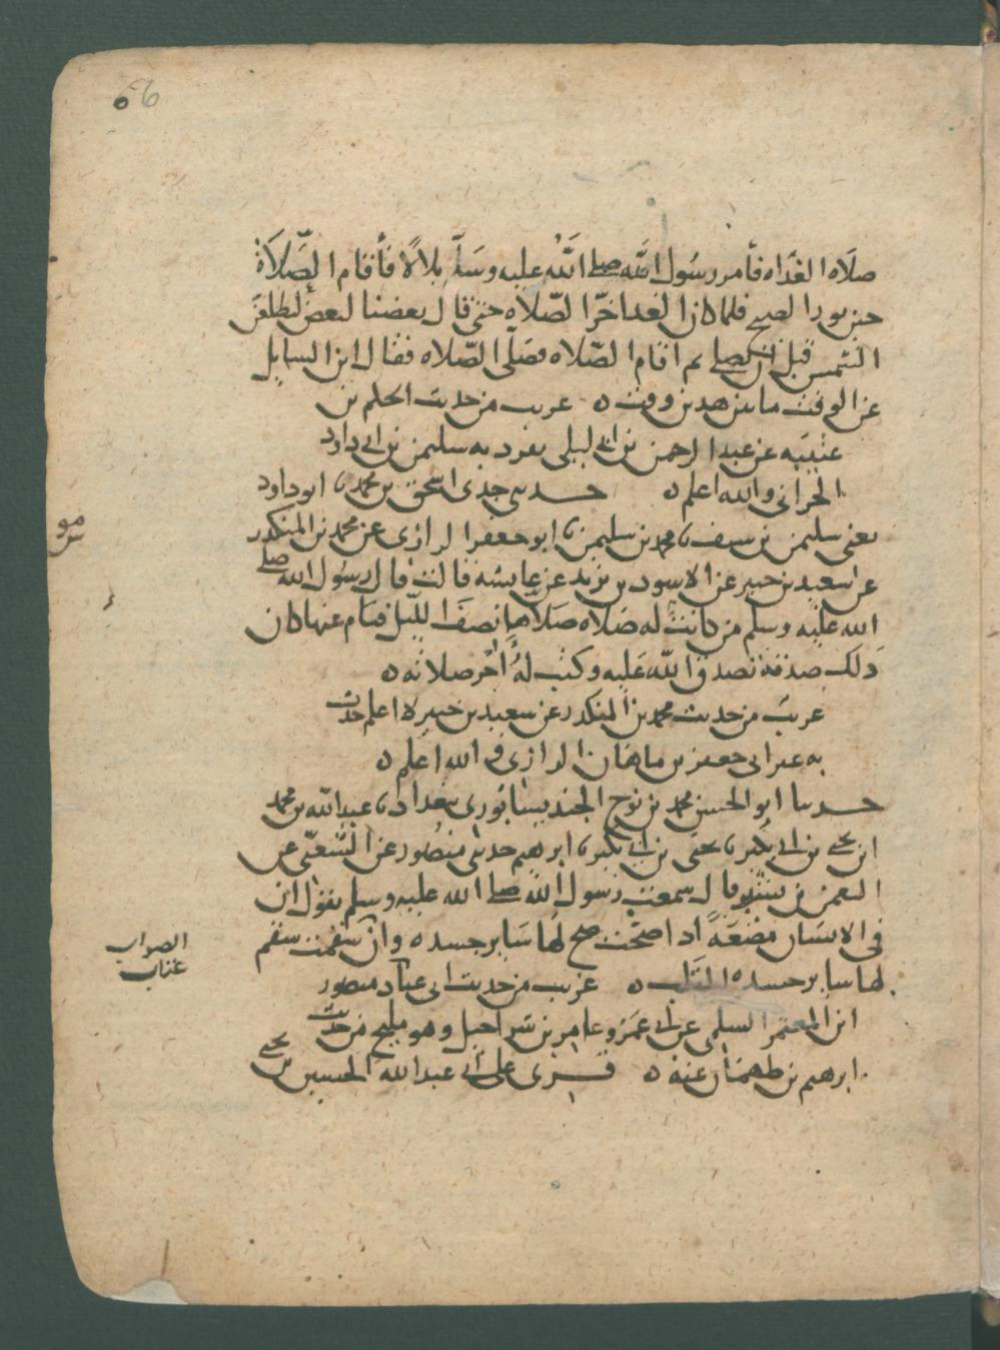 56
صلاه الغداه فأمر رسول الله صلى الله عليه وسلم بلالا فأقام الصلاة
حين نور الصبح فلما كان الغد اخر الصلاه حتى قال بعضنا لبعض لطلعن
الشمس قبل ان نصلي ثم اقام الصلاه فصلى الصلاه فقال اين السايل
عن الوقت ما بين هذين وقت ٥ غريب من حديث الحكم بن
عتيبه عن عبد الرحمن بن ابي ليلى تفرد به سليمن بن ابي داود
الحراني والله اعلم ٥ حدثني جدي اسحق بن محمد نا ابو داود
يعني سليمن بن سيف نا محمد بن سليمن نا ابو جعفر الرازي عن محمد بن المنكدر
عن سعيد بن جبير عن الاسود بن يزيد عن عايشه قالت قال رسول الله صلى
الله عليه وسلم من كانت له صلاه صلاها نصف الليل فنام عنها كان
ذلك صدقة تصدق الله عليه وكتب له اجر صلاته ٥
غريب من حديث محمد بن المنكدر عن سعيد بن جبير لا اعلم حدث
به غير ابي جعفر بن ماهان الرازي والله اعلم ٥
حدثنا ابو الحسن محمد بن نوح الجنديسابوري ببغداد نا عبد الله بن محمد
ابن يحيى بن ابي بكير نا يحيى بن ابي بكير نا ابرهيم حدثني منصور عن الشعبي عن
النعمن بن بشير قال سمعت رسول الله صلى الله عليه وسلم يقول ان
في الانسان مضغة اذا صحت صح لها ساير جسده وان سقمت سقم
لها ساير جسده القلب ٥ غريب من حديث ابي عتاد منصور
ابن المعتمر السلمي عن ابي عمرو عامر بن شراحيل وهو مليح من حديث
ابرهيم بن طهمان عنه ٥ قرى على ابي عبد الله الحسين بن يحيى
الصواب
عتاب